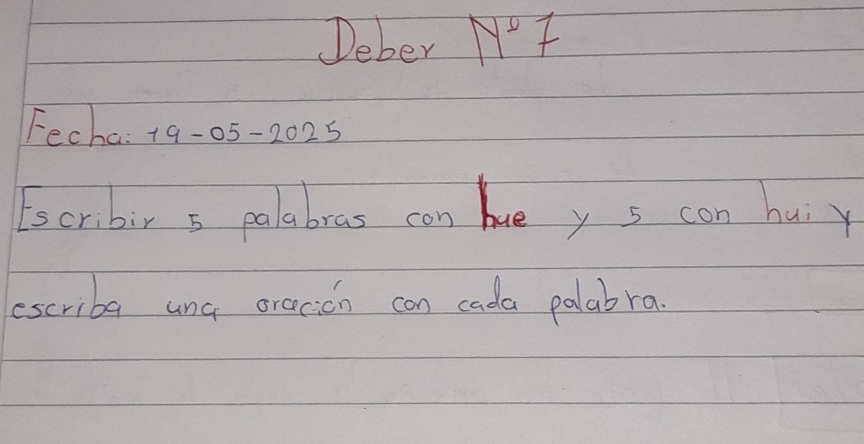 Deber Nº 7
Fecha: 19-05-2025
Escribir 5 palabras con hue y 5 con hui y
escriba una oración con cada palabra.